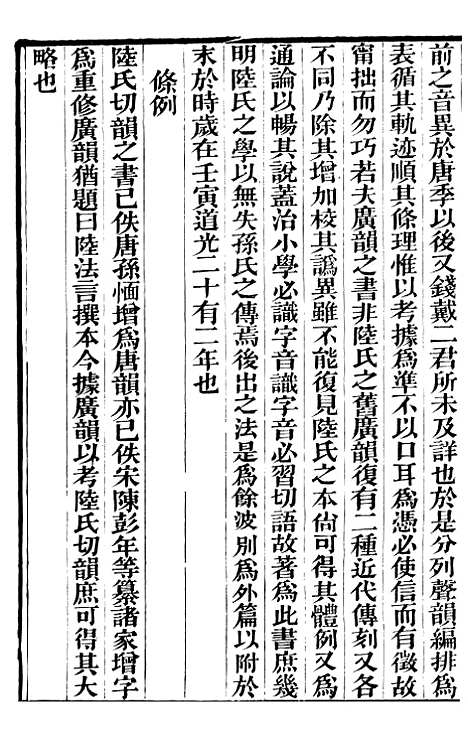 前之音異於唐季以後又錢戴二君所未及詳也於是分列聲韻編排爲
表循其軌迹順其條理惟以考據爲準不以口耳爲憑必使信而有徵故
甯拙而勿巧若夫廣韻之書非陸氏之舊廣韻復有二種近代傳刻又各
不同乃除其增加校其譌異雖不能復見陸氏之本尙可得其體例又爲
通論以暢其說蓋治小學必識字音識字音必習切語故著爲此書庶幾
明陸氏之學以無失孫氏之傳焉後出之法是爲餘波別爲外篇以附於
末於時歲在壬寅道光二十有二年也
條例
陸氏切韻之書已佚唐孫愐增爲唐韻亦已佚宋陳彭年等纂諸家增字
爲重修廣韻猶題曰陸法言撰本今據廣韻以考陸氏切韻庶可得其大
略也